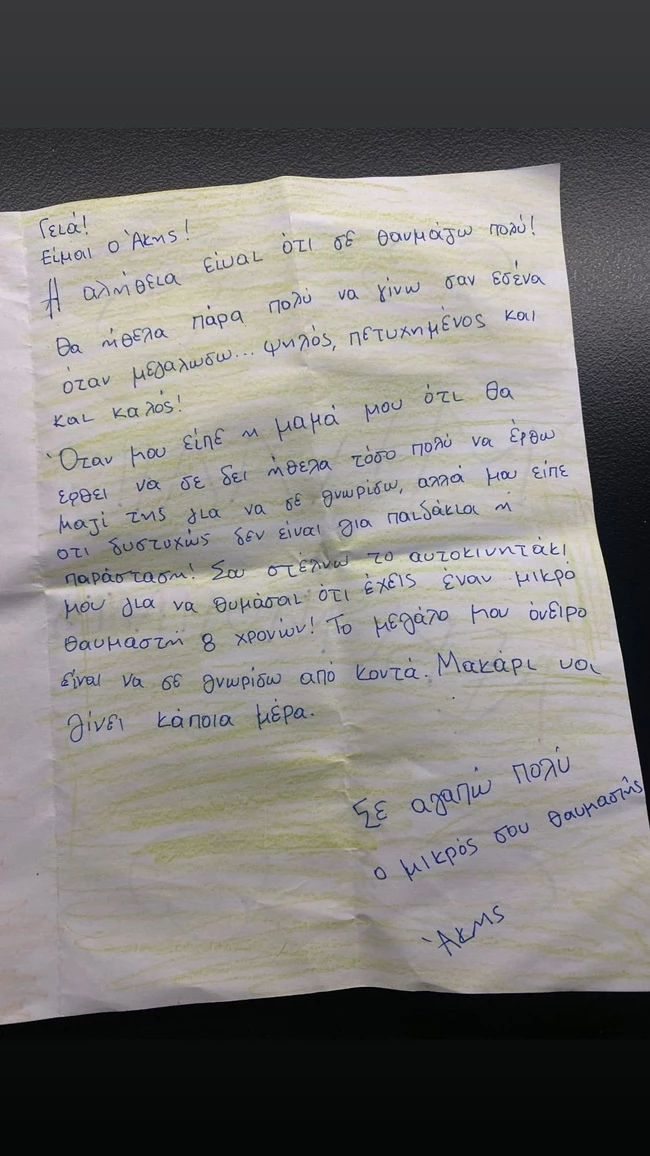 Γειά!
Είμαι ο Άκης!
Η αλήθεια είναι ότι σε θαυμάζω πολύ!
Θα ήθελα πάρα πολύ να γίνω σαν εσένα
όταν μεγαλώσω... ψηλός, πετυχημένος και
και καλός!
Όταν μου είπε η μαμά μου ότι θα
έρθει να σε δει ήθελα τόσο πολύ να έρθω
μαζί της για να σε γνωρίσω, αλλά μου είπε
οτι δυστυχώς δεν είναι για παιδάκια η
παράσταση! Σου στέλνω το αυτοκινητάκι
μου για να θυμάσαι ότι έχεις έναν μικρό
θαυμαστή 8 χρονών! Το μεγάλο μου όνειρο
είναι να σε γνωρίσω από κοντά. Μακάρι να
γίνει κάποια μέρα.
Σε αγαπώ πολύ
ο μικρός σου θαυμαστής
Άκης